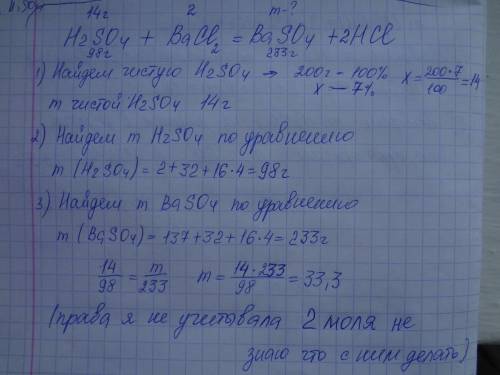 14г 2 m-?
H₂SO₄ + BaCl₂ = BaSO₄ + 2HCl
98г 233г
1) Найдем чистую H₂SO₄ → 200г - 100% x = 200·7/100 = 14
x — 7%
m чистой H₂SO₄ 14г
2) Найдем m H₂SO₄ по уравнению
m (H₂SO₄) = 2+32+16·4=98г
3) Найдем m BaSO₄ по уравнению
m (BaSO₄) = 137+32+16·4=233г
14/98 = m/233 m = 14·233/98 = 33,3
(права я не учитывала 2 моля не
знаю что с ним делать)